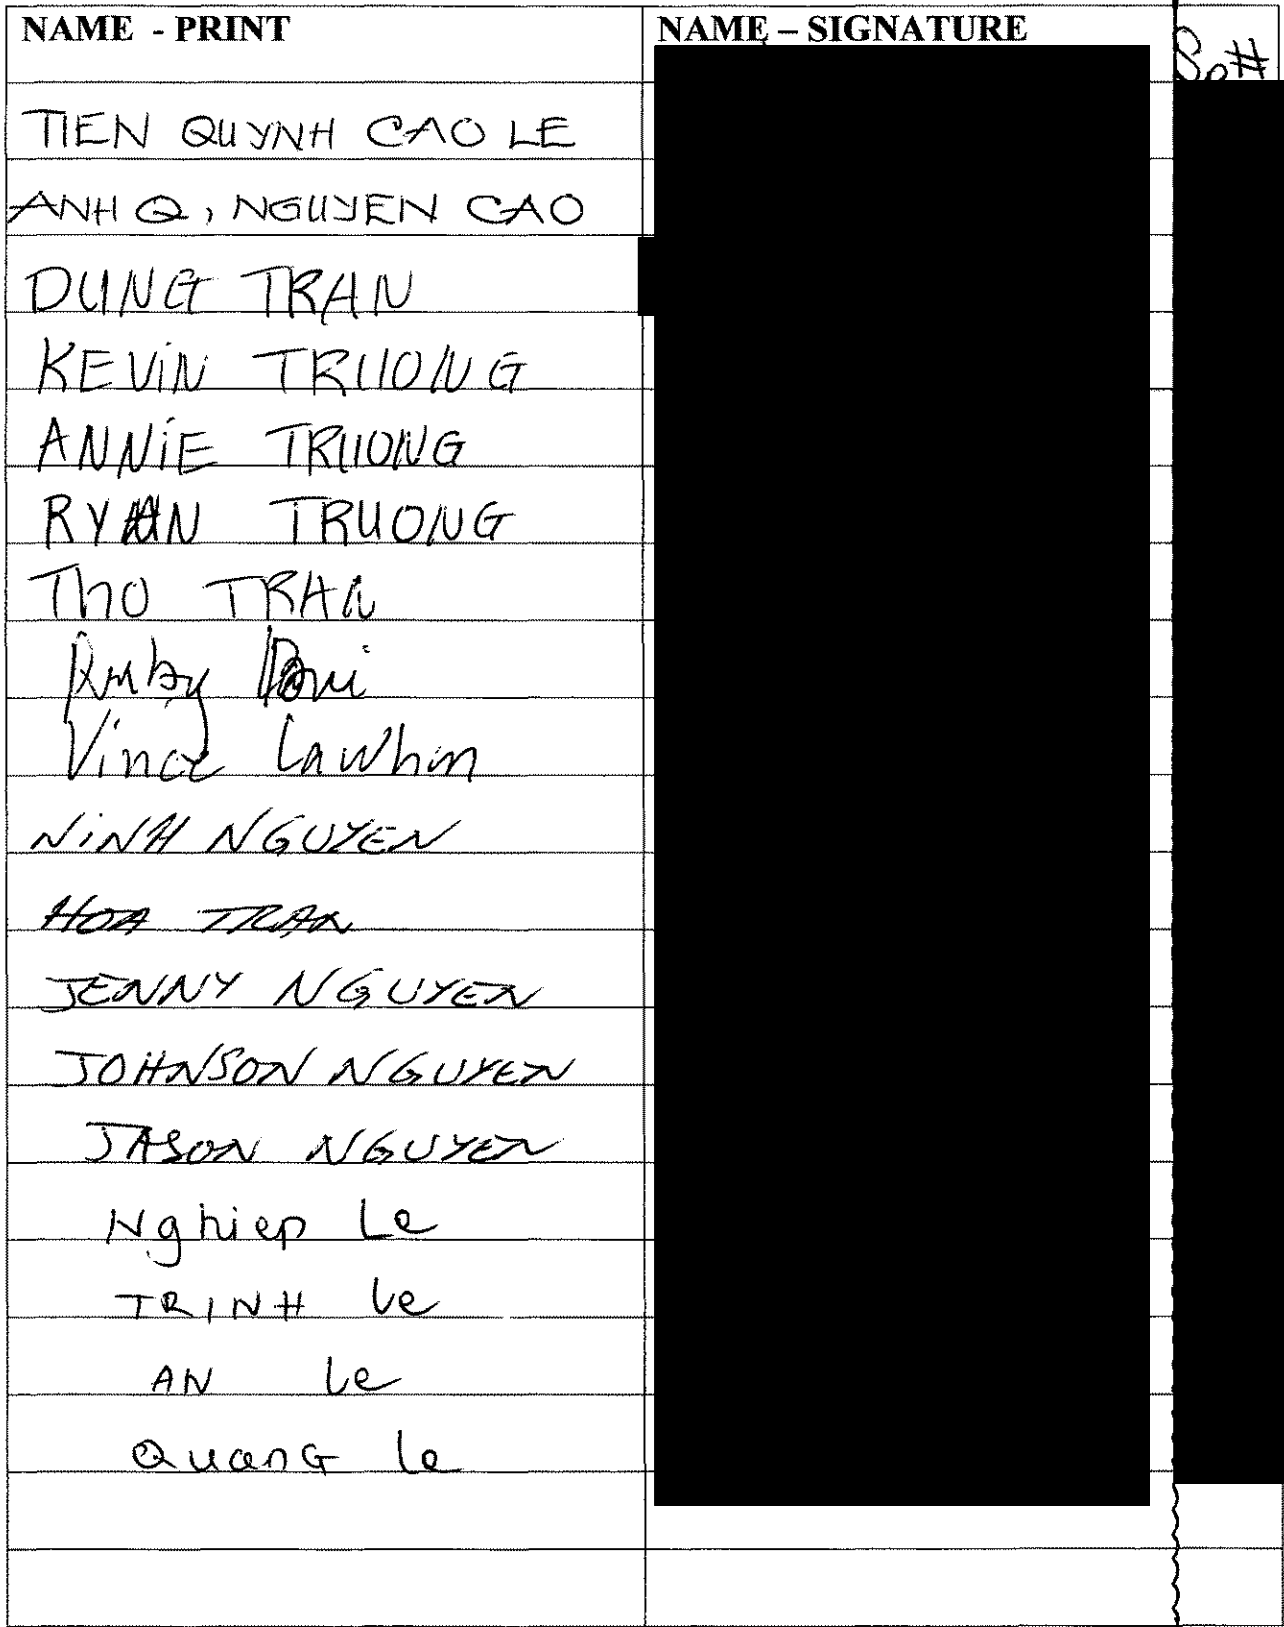 NAME - PRINT NAME – SIGNATURE So#
TIEN QUYNH CAO LE
ANH Q, NGUYEN CAO
DUNG TRAN
KEVIN TRUONG
ANNIE TRUONG
RYAN TRUONG
Tho TRAN
Ruby
Vince Lawhon
NINH NGUYEN
HOA TRAN
JENNY NGUYEN
JOHNSON NGUYEN
JASON NGUYEN
Nghiep Le
TRINH Le
AN Le
QuanG Le